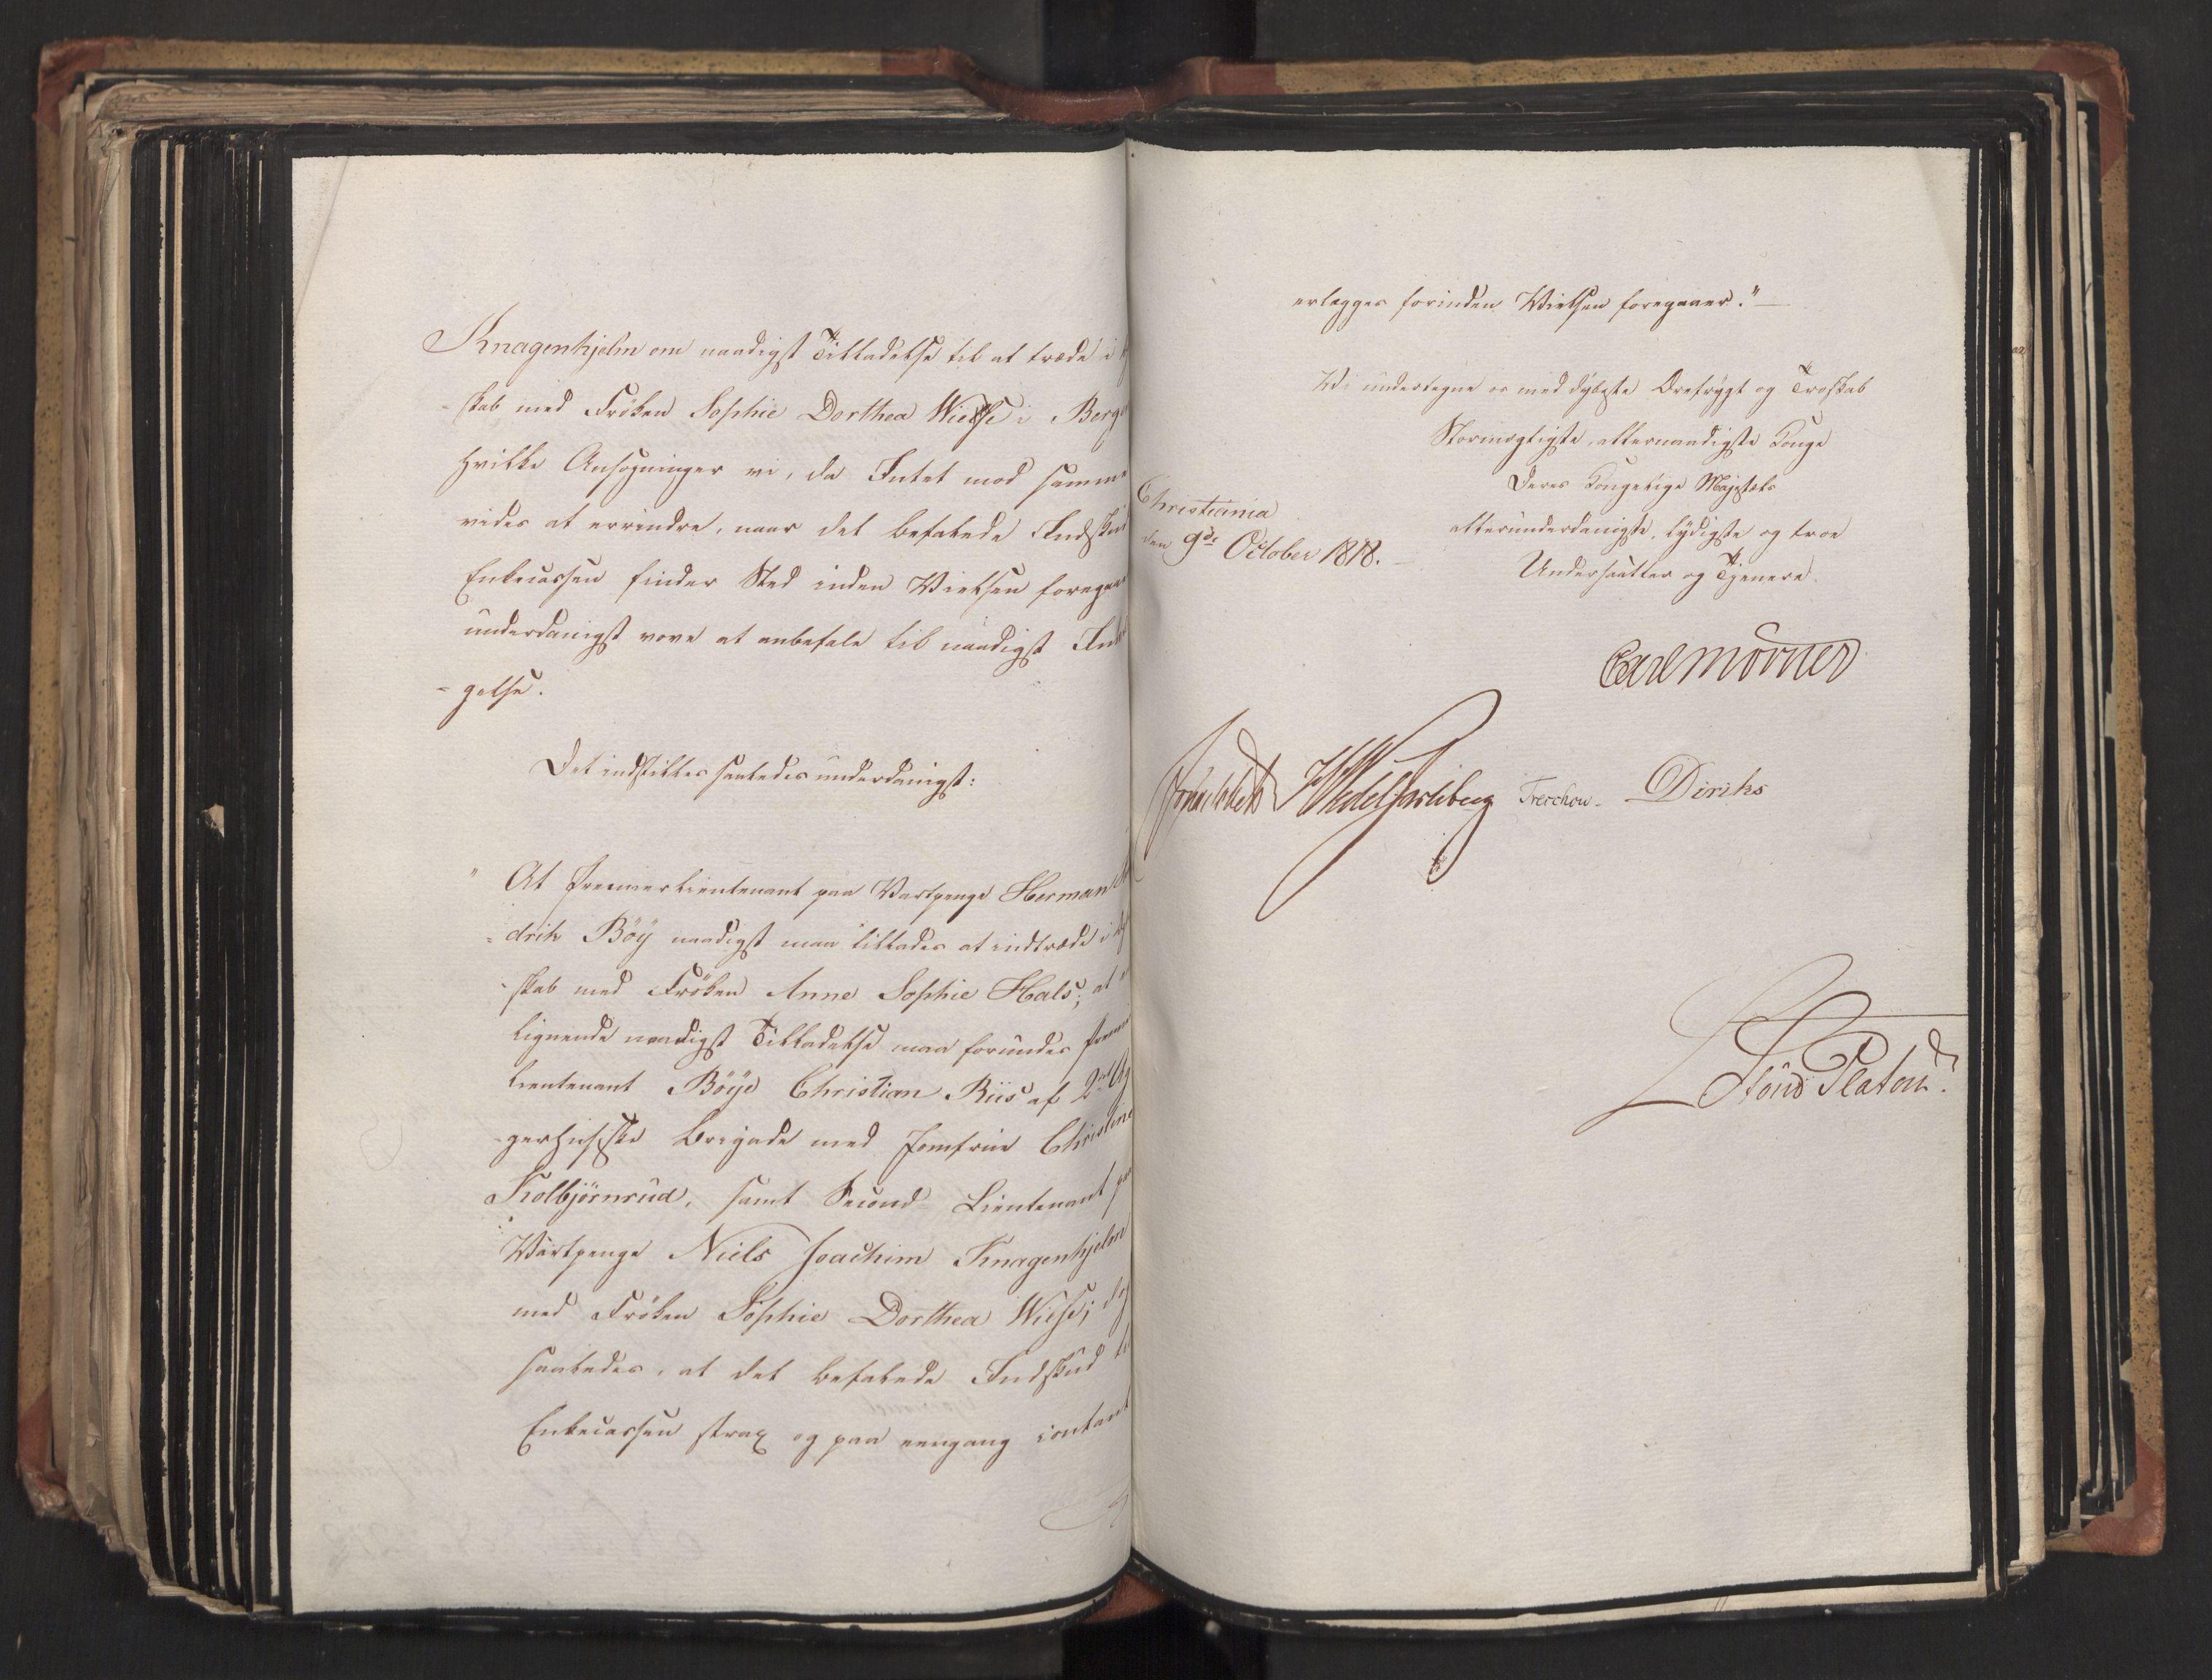 Knagenhjelm om naadigst Tilladelse til at træde i
skab med Frøken Sophie Dorthea Wiese i Berge
hvilke Ansøgninger vi, da Intet mod samme
vides at erindre, naar det befalede Indskud
Enkecassen finder Sted inden Vielsen foregaar
underdanigst vove at anbefale til naadigst Ind
-gelse.
Det indstilles saaledes underdanigst:
" At Premierlieutenant paa Vartpenge Herman
=drik Böÿ naadigst maa tillades at indtræde i
-skab med Frøken Anne Sophie Hals; at
lignende naadigst Tilladelse maa forundes Premi
Lieutenant Böÿe Christian Riis af 2det
-gerhusiske Brigade med Jomfrue Christine
Kolbjörnrud, samt Second-Lieutenant paa
Vartpenge Niels Joachim Knagenhjelm
med Frøken Sophie Dorthea Wiese; dog
saaledes, at det befalede Indskud til
Enkecassen strax og paa eengang contant
erlægges forinden Vielsen foregaaer."
Vi undertegne os med dybeste Ærefrygt og Troskab
Stormægtigste, allernaadigste Konge
Deres Kongelige Majestæts
Christiania
allerunderdanigste, lydigste og troe
den 9de October 1818.
Undersaatter og Tjenere.
Carl Mörner
Wedel Jarlsberg Treschow. Diriks
Lönö Platou